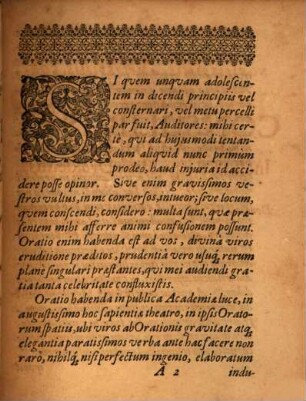 SI quem unquam adolescen-
tem in dicendi principiis vel
consternari, vel metu percelli
par fuit, Auditores: mihi cer-
te, qui ad hujusmodi tentan-
dum aliquid nunc primum
prodeo, haud injuria id acci-
dere posse opinor. Sive enim gravissimos ve-
stros vultus, in me conversos, intueor; sive locum,
quem conscendi, considero: multa sunt, quæ præ-
sentem mihi afferre animi confusionem possunt.
Oratio enim habenda est ad vos, divina viros
eruditione præditos, prudentiâ vero usuq, rerum
plane singulari præstantes, qui mei audiendi gra-
tia tanta celebritate confluxistis.
Oratio habenda in publica Academiæ luce, in
augustissimo hoc sapientiæ theatro, in ipsis Orato-
rum spatiis, ubi viros ab Orationis gravitate atq,
elegantia paratissimos verba ante hac facere non
raro, nihilq, nisi perfectum ingenio, elaboratum
A 2 indu-